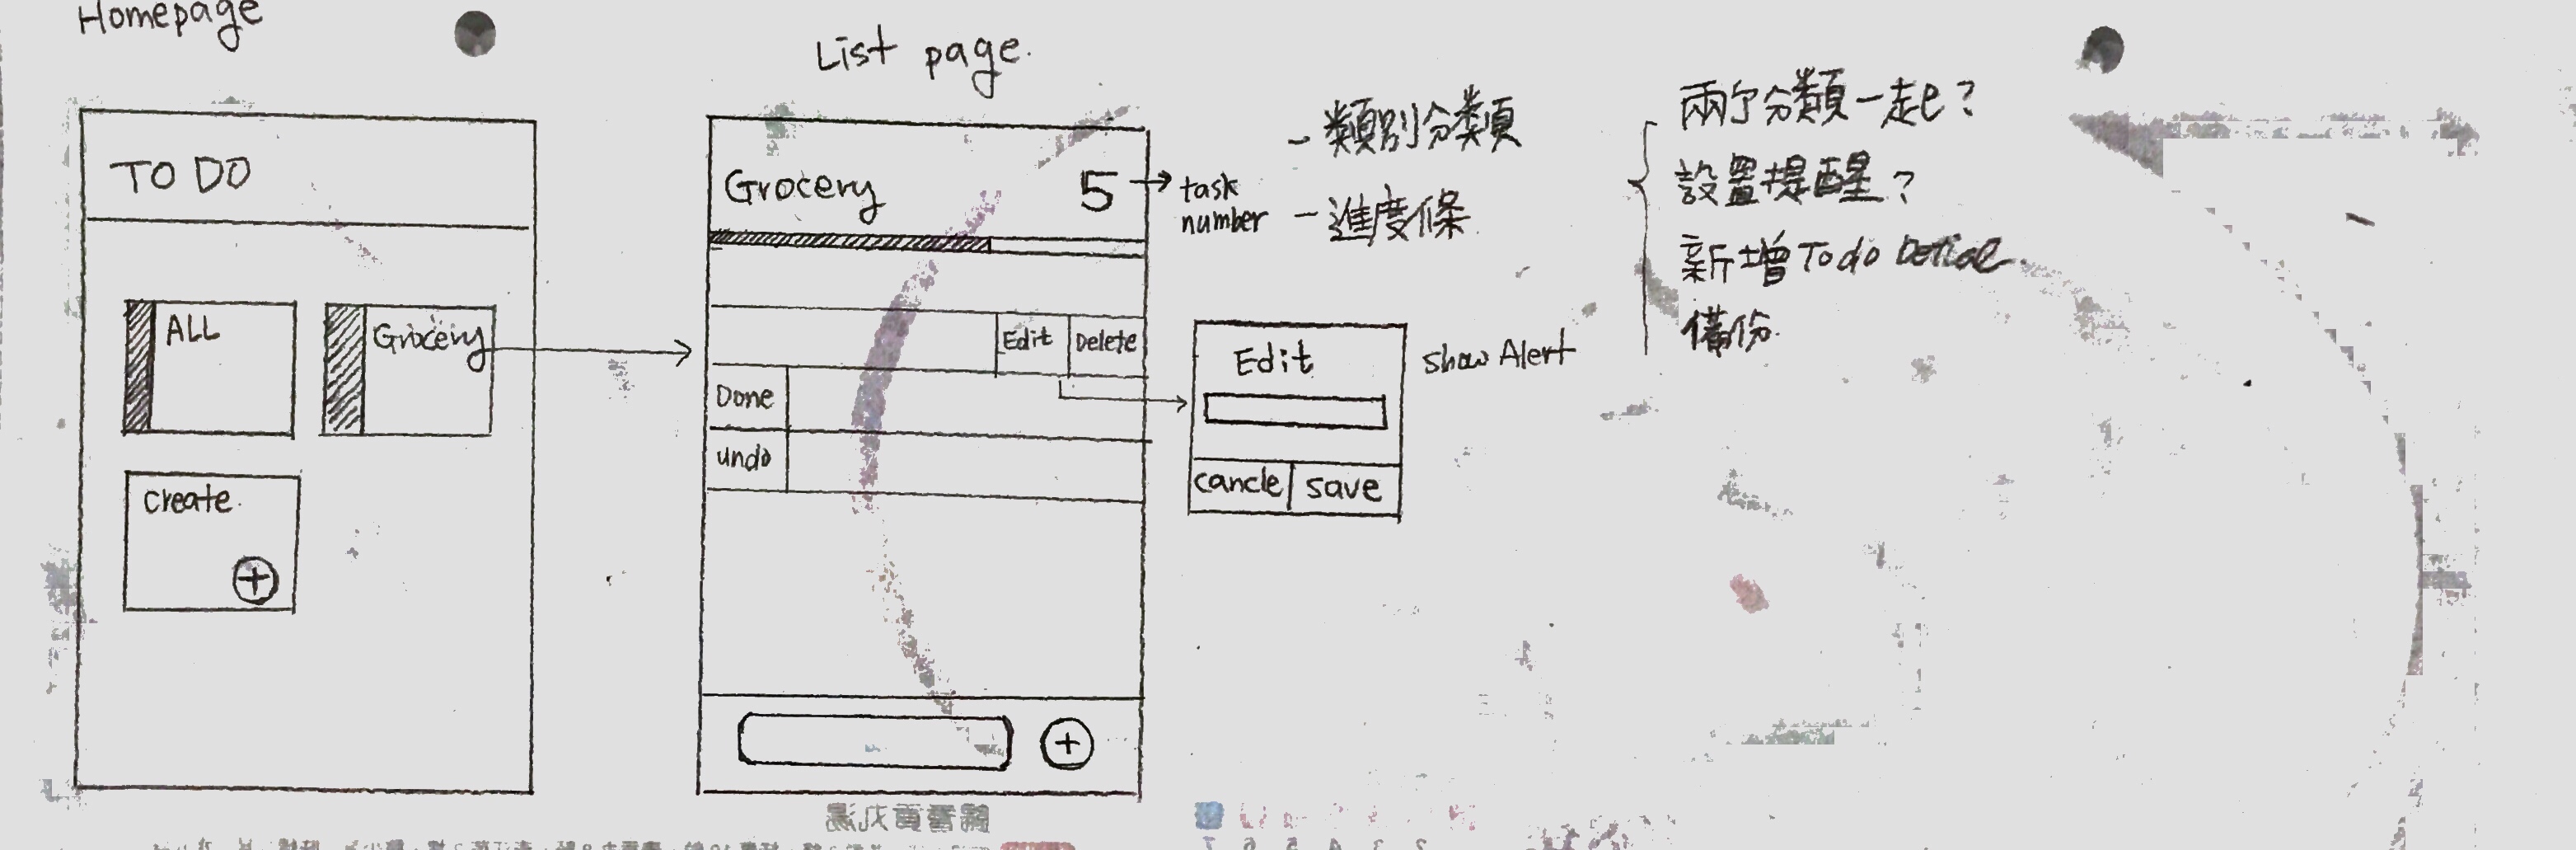 Homepage
TO DO
ALL
Grocery
Create.
+
List page.
Grocery 5
task
number
Edit Delete
Done
undo
+
Edit
cancle save
show Alert
- 類別分類
- 進度條
兩個分類一起?
設置提醒?
新增 Todo Detial
備份.